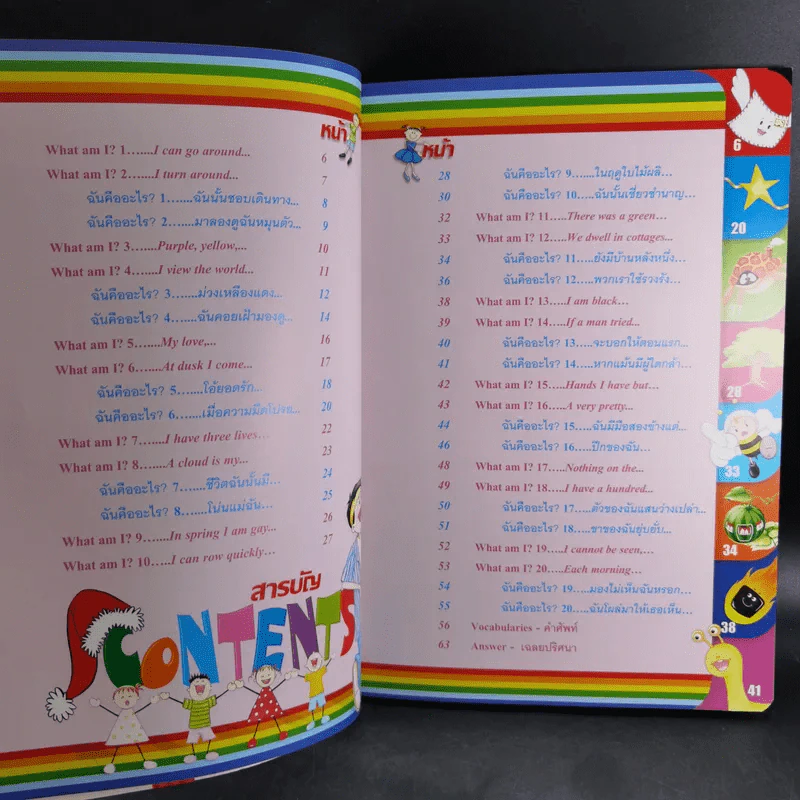 หน้า
What am I? 1…...I can go around... 6
What am I? 2…...I turn around... 7
ฉันคืออะไร? 1……ฉันนั้นชอบเดินทาง... 8
ฉันคืออะไร? 2……มาลองดูฉันหมุนตัว... 9
What am I? 3…...Purple, yellow,... 10
What am I? 4…...I view the world... 11
ฉันคืออะไร? 3……ม่วงเหลืองแดง... 12
ฉันคืออะไร? 4……ฉันคอยเฝ้ามองดู... 14
What am I? 5…...My love,... 16
What am I? 6…...At dusk I come... 17
ฉันคืออะไร? 5……โอ้ยอดรัก... 18
ฉันคืออะไร? 6……เมื่อความมืดโปรย... 20
What am I? 7…...I have three lives… 22
What am I? 8…...A cloud is my... 23
ฉันคืออะไร? 7……ชีวิตฉันนั้นมี... 24
ฉันคืออะไร? 8……โน่นแม่ฉัน... 25
What am I? 9…...In spring I am gay... 26
What am I? 10…...I can row quickly… 27
สารบัญ
CONTENTS
หน้า
28 ฉันคืออะไร? 9……ในฤดูใบไม้ผลิ...
30 ฉันคืออะไร? 10……ฉันนั้นเชี่ยวชำนาญ...
32 What am I? 11…...There was a green...
33 What am I? 12…...We dwell in cottages...
34 ฉันคืออะไร? 11……ยังมีบ้านหลังหนึ่ง...
36 ฉันคืออะไร? 12……พวกเราใช้รวงรัง...
38 What am I? 13…...I am black…
39 What am I? 14…...If a man tried...
40 ฉันคืออะไร? 13……จะบอกให้ตอนแรก...
41 ฉันคืออะไร? 14……หากแม้นมีผู้ใดกล้า...
42 What am I? 15…...Hands I have but…
43 What am I? 16…...A very pretty...
44 ฉันคืออะไร? 15……ฉันมีมือสองข้างแต่...
46 ฉันคืออะไร? 16……ปีกของฉัน...
48 What am I? 17…...Nothing on the...
49 What am I? 18…...I have a hundred...
50 ฉันคืออะไร? 17……ตัวของฉันแสนว่างเปล่า...
51 ฉันคืออะไร? 18……ขาของฉันยุ่บยั่บ...
52 What am I? 19…...I cannot be seen,…
53 What am I? 20…..Each morning…
54 ฉันคืออะไร? 19……มองไม่เห็นฉันหรอก...
55 ฉันคืออะไร? 20……ฉันโผล่มาให้เธอเห็น...
56 Vocabularies - คำศัพท์
63 Answer - เฉลยปริศนา
6
20
28
33
34
38
41